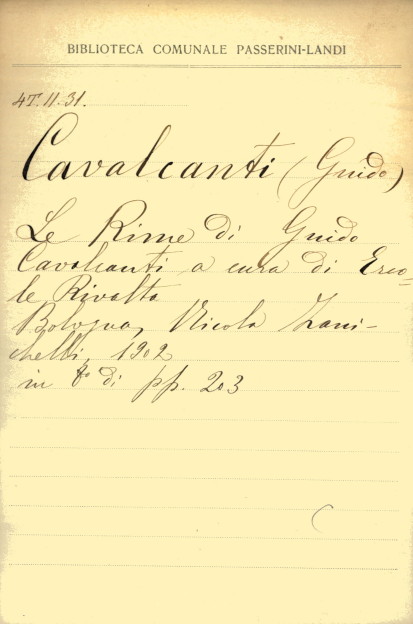 BIBLIOTECA COMUNALE PASSERINI-LANDI
4T.II.31.
Cavalcanti (Guido)
Le Rime di Guido
Cavalcanti a cura di Erco-
le Rivalta
Bologna, Nicola Zani-
chelli, 1902
in 8º di pp. 203